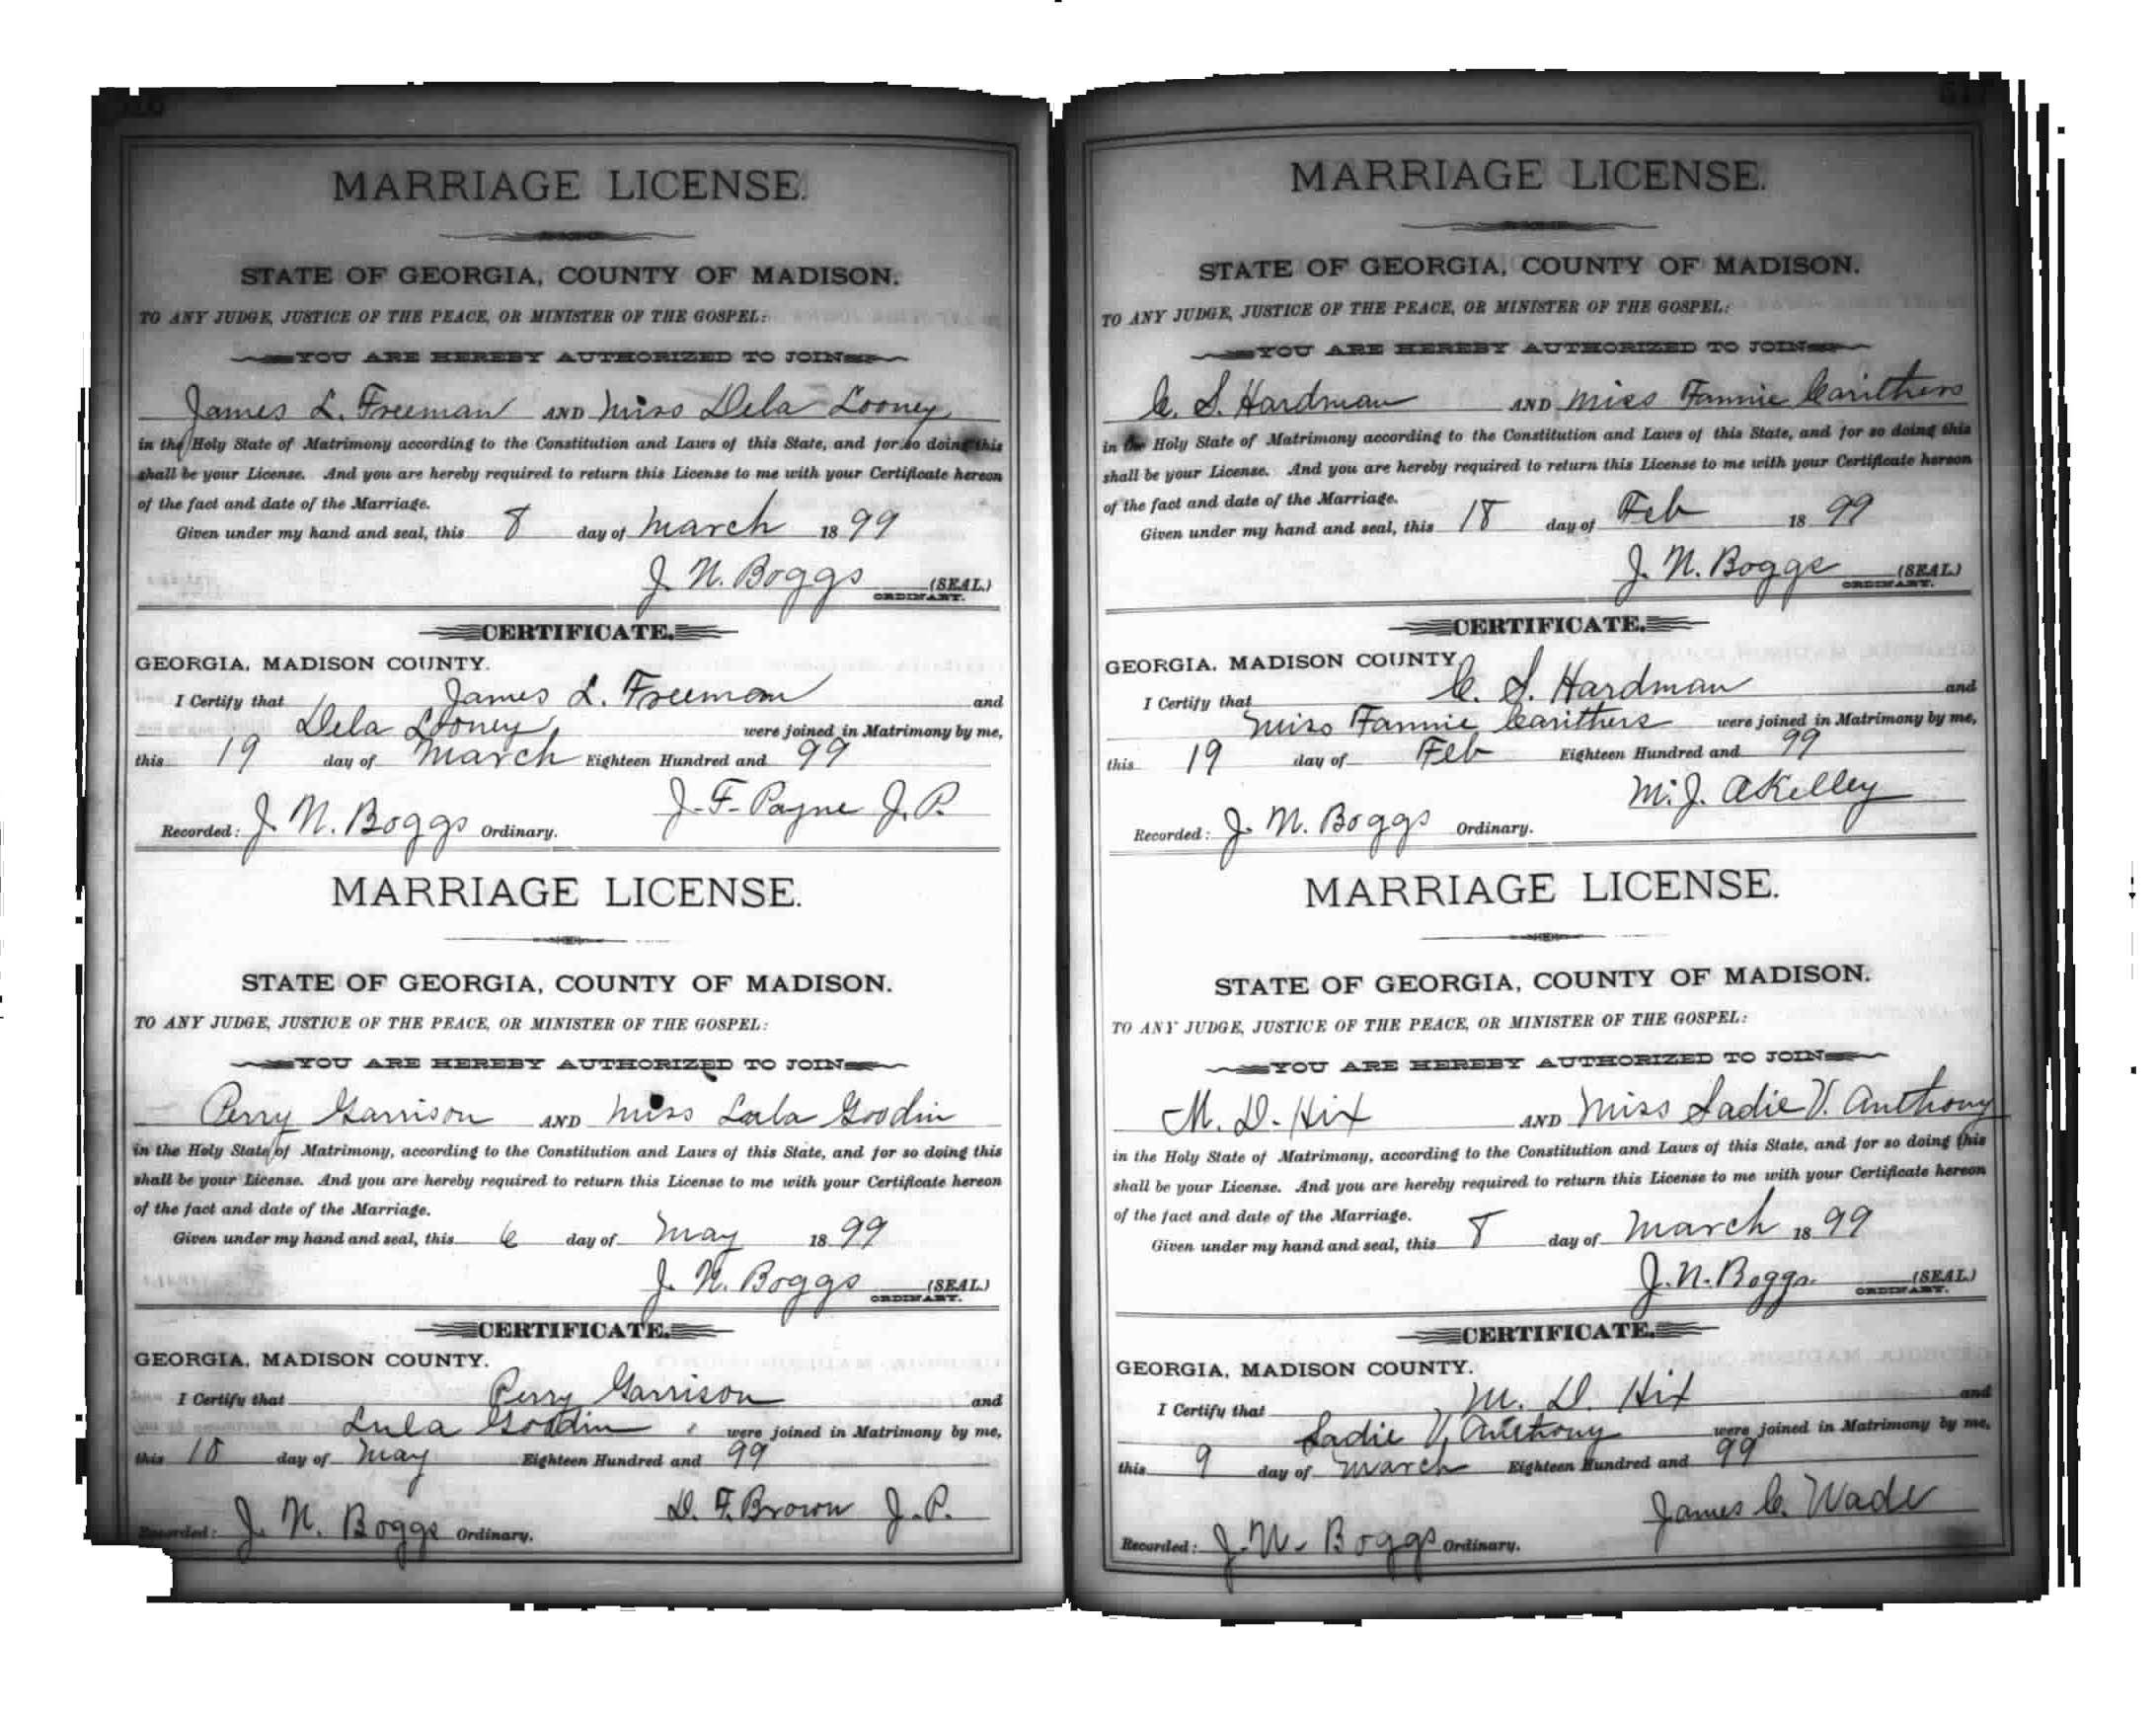 MARRIAGE LICENSE.
STATE OF GEORGIA, COUNTY OF MADISON.
TO ANY JUDGE, JUSTICE OF THE PEACE, OR MINISTER OF THE GOSPEL:
YOU ARE HEREBY AUTHORIZED TO JOIN
James L. Freeman AND Miss Dela Looney
in the Holy State of Matrimony according to the Constitution and Laws of this State, and for so doing this
shall be your License. And you are hereby required to return this License to me with your Certificate hereon
of the fact and date of the Marriage.
Given under my hand and seal, this 8 day of March 1899
J. N. Boggs (SEAL.)
ORDINARY.
CERTIFICATE.
GEORGIA, MADISON COUNTY.
I Certify that James L. Freeman and
Dela Looney were joined in Matrimony by me,
this 19 day of March Eighteen Hundred and 99
J. F. Payne J. P.
Recorded: J. N. Boggs Ordinary.
MARRIAGE LICENSE.
STATE OF GEORGIA, COUNTY OF MADISON.
TO ANY JUDGE, JUSTICE OF THE PEACE, OR MINISTER OF THE GOSPEL:
YOU ARE HEREBY AUTHORIZED TO JOIN
Perry Garrison AND Miss Lula Goodin
in the Holy State of Matrimony, according to the Constitution and Laws of this State, and for so doing this
shall be your License. And you are hereby required to return this License to me with your Certificate hereon
of the fact and date of the Marriage.
Given under my hand and seal, this 6 day of May 1899
J. N. Boggs (SEAL.)
ORDINARY.
CERTIFICATE.
GEORGIA, MADISON COUNTY.
I Certify that Perry Garrison and
Lula Goodin were joined in Matrimony by me,
this day of May Eighteen Hundred and 99
D. F. Brown J. P.
Recorded: J. N. Boggs Ordinary.
MARRIAGE LICENSE.
STATE OF GEORGIA, COUNTY OF MADISON.
TO ANY JUDGE, JUSTICE OF THE PEACE, OR MINISTER OF THE GOSPEL:
YOU ARE HEREBY AUTHORIZED TO JOIN
C. S. Hardman AND Miss Fannie Carithers
in the Holy State of Matrimony according to the Constitution and Laws of this State, and for so doing this
shall be your License. And you are hereby required to return this License to me with your Certificate hereon
of the fact and date of the Marriage.
Given under my hand and seal, this 18 day of Feb 1899
J. N. Boggs (SEAL.)
ORDINARY.
CERTIFICATE.
GEORGIA, MADISON COUNTY.
I Certify that C. S. Hardman and
Miss Fannie Carithers were joined in Matrimony by me,
this 19 day of Feb Eighteen Hundred and 99
M. J. Akelley
Recorded: J. N. Boggs Ordinary.
MARRIAGE LICENSE.
STATE OF GEORGIA, COUNTY OF MADISON.
TO ANY JUDGE, JUSTICE OF THE PEACE, OR MINISTER OF THE GOSPEL:
YOU ARE HEREBY AUTHORIZED TO JOIN
M. D. Hix AND Miss Sadie V. Anthony
in the Holy State of Matrimony, according to the Constitution and Laws of this State, and for so doing this
shall be your License. And you are hereby required to return this License to me with your Certificate hereon
of the fact and date of the Marriage.
Given under my hand and seal, this 8 day of March 1899
J. N. Boggs (SEAL.)
ORDINARY.
CERTIFICATE.
GEORGIA, MADISON COUNTY.
I Certify that M. D. Hix and
Sadie V. Anthony were joined in Matrimony by me,
this 9 day of March Eighteen Hundred and 99
James C. Wade
Recorded: J. N. Boggs Ordinary.